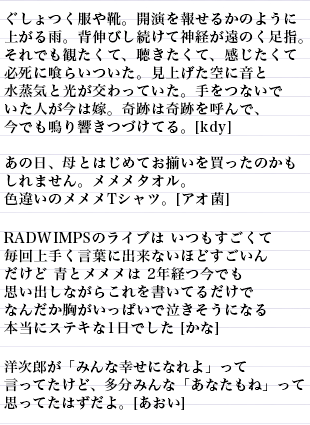 ぐしょつく服や靴。開演を報せるかのように
上がる雨。背伸びし続けて神経が遠のく足指。
それでも観たくて、聴きたくて、感じたくて
必死に喰らいついた。見上げた空に音と
水蒸気と光が交わっていた。手をつないで
いた人が今は嫁。奇跡は奇跡を呼んで、
今でも鳴り響きつづけてる。[kdy]
あの日、母とはじめてお揃いを買ったのかも
しれません。メメメタオル。
色違いのメメメTシャツ。[アオ菌]
RADWIMPSのライブは いつもすごくて
毎回上手く言葉に出来ないほどすごいん
だけど 青とメメメは 2年経つ今でも
思い出しながらこれを書いてるだけで
なんだか胸がいっぱいで泣きそうになる
本当にステキな1日でした [かな]
洋次郎が「みんな幸せになれよ」って
言ってたけど、多分みんな「あなたもね」って
思ってたはずだよ。[あおい]